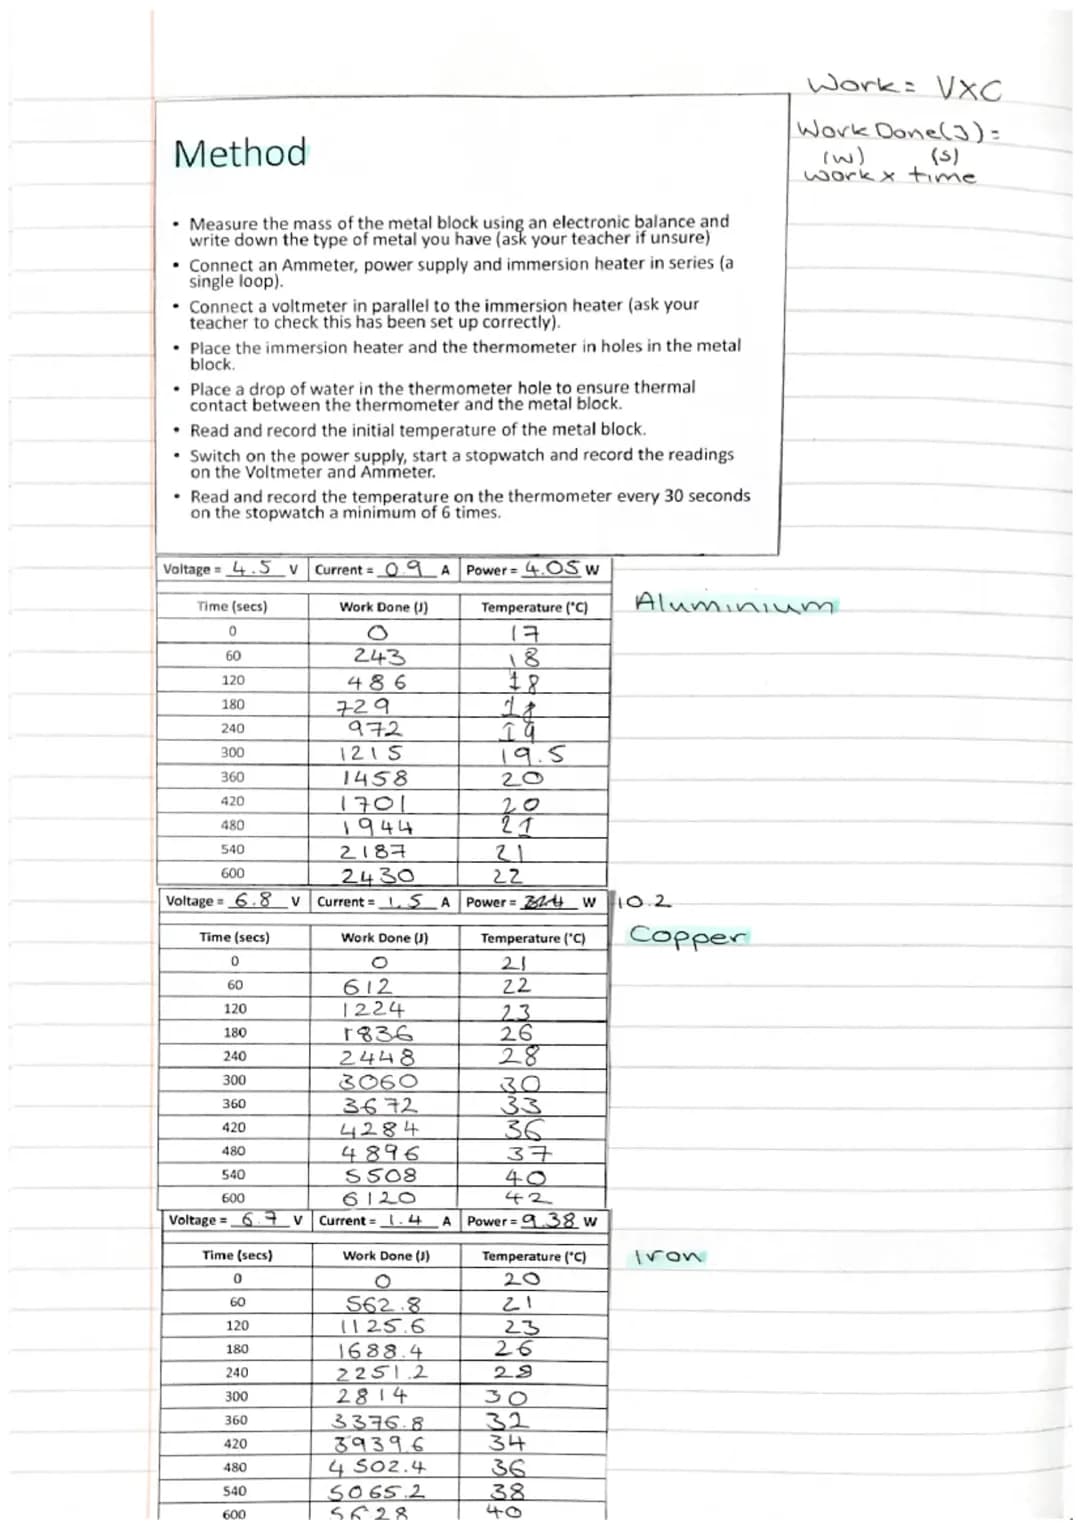 Work = VXC
Work Done(J) =
(w) (s)
work x time
Method
• Measure the mass of the metal block using an electronic balance and
write down the type of metal you have (ask your teacher if unsure)
• Connect an Ammeter, power supply and immersion heater in series (a
single loop).
• Connect a voltmeter in parallel to the immersion heater (ask your
teacher to check this has been set up correctly).
• Place the immersion heater and the thermometer in holes in the metal
block.
• Place a drop of water in the thermometer hole to ensure thermal
contact between the thermometer and the metal block.
• Read and record the initial temperature of the metal block.
• Switch on the power supply, start a stopwatch and record the readings
on the Voltmeter and Ammeter.
• Read and record the temperature on the thermometer every 30 seconds
on the stopwatch a minimum of 6 times.
Voltage = 4.5 V Current = 0.9 A Power = 4.05 W
Aluminium
Time (secs) Work Done (J) Temperature (°C)
0 0 17
60 243 18
120 486 18
180 729 18
240 972 19
300 1215 19.5
360 1458 20
420 1701 20
480 1944 21
540 2187 21
600 2430 22
Voltage = 6.8 V Current = 1.5 A Power = W 10.2
Copper
Time (secs) Work Done (J) Temperature (°C)
0 0 21
60 612 22
120 1224 23
180 1836 26
240 2448 28
300 3060 30
360 3672 33
420 4284 36
480 4896 37
540 5508 40
600 6120 42
Voltage = 6.7 V Current = 1.4 A Power = 9.38 W
Iron
Time (secs) Work Done (J) Temperature (°C)
0 0 20
60 562.8 21
120 1125.6 23
180 1688.4 26
240 2251.2 28
300 2814 30
360 3376.8 32
420 3939.6 34
480 4502.4 36
540 5065.2 38
600 5628 40